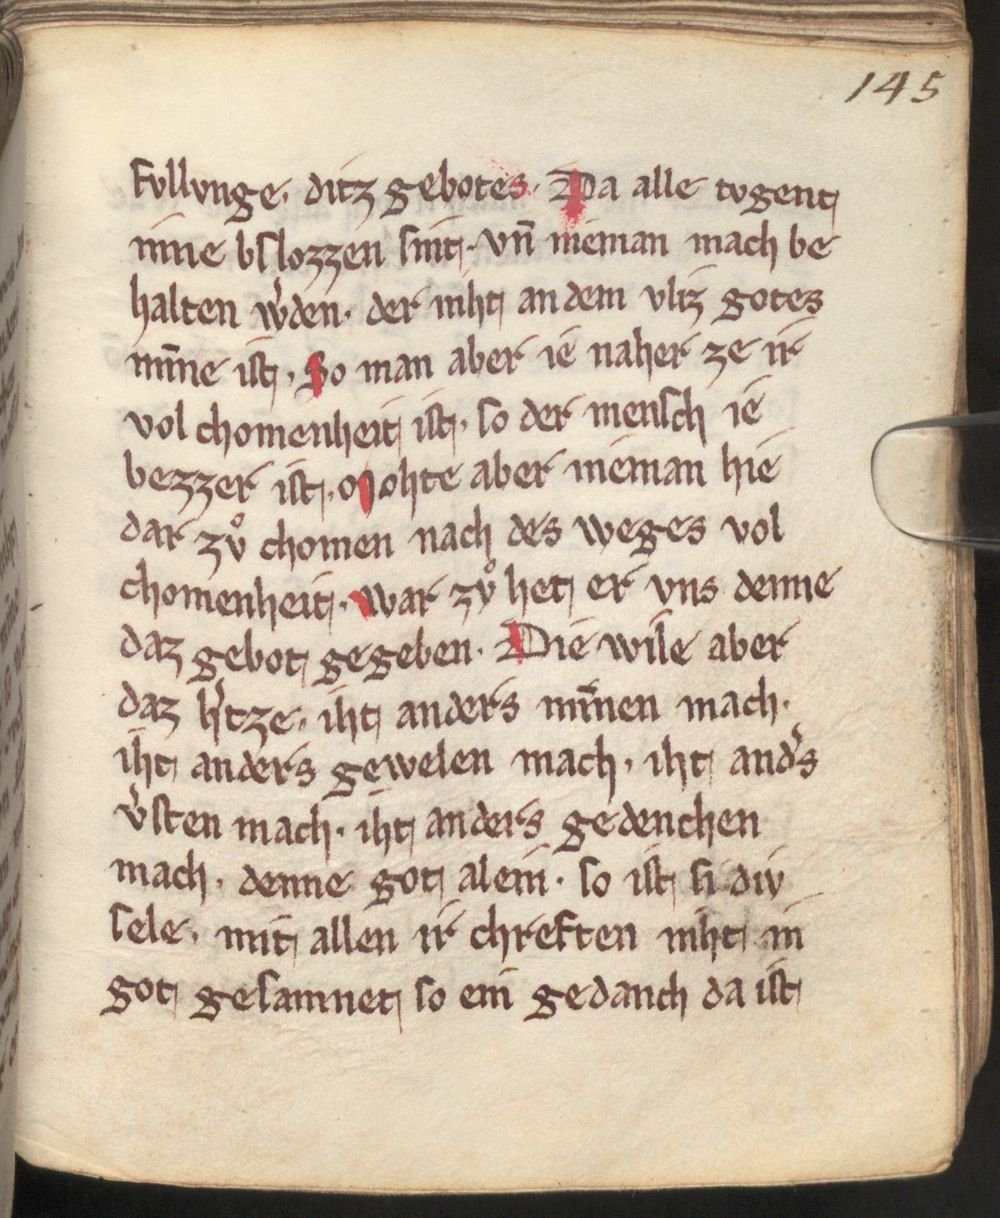 145
fvllvnge. ditz gebotes. Da alle tvgent
inne bslozzen sint. vn̄ nieman mach be
halten w̓den. der niht an dem vliz gotes
mīne ist. So man aber ie naher ze ir
vol chomenheit ist. so der mensch ie
bezzer ist. Mohte aber nieman hie
dar zvͦ chomen nach des weges vol
chomenheit. War zvͦ het er vns denne
daz gebot gegeben. Die wile aber
daz h̓tze. iht anders mīnen mach.
iht anders gewelen mach. iht and̓s
v̓sten mach. iht anders gedenchen
mach. denne got alein. so ist si div
sele. mit allen ir chreften niht in
got gesamnet so ein gedanch da ist